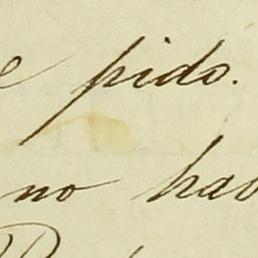 e pido.
no hab